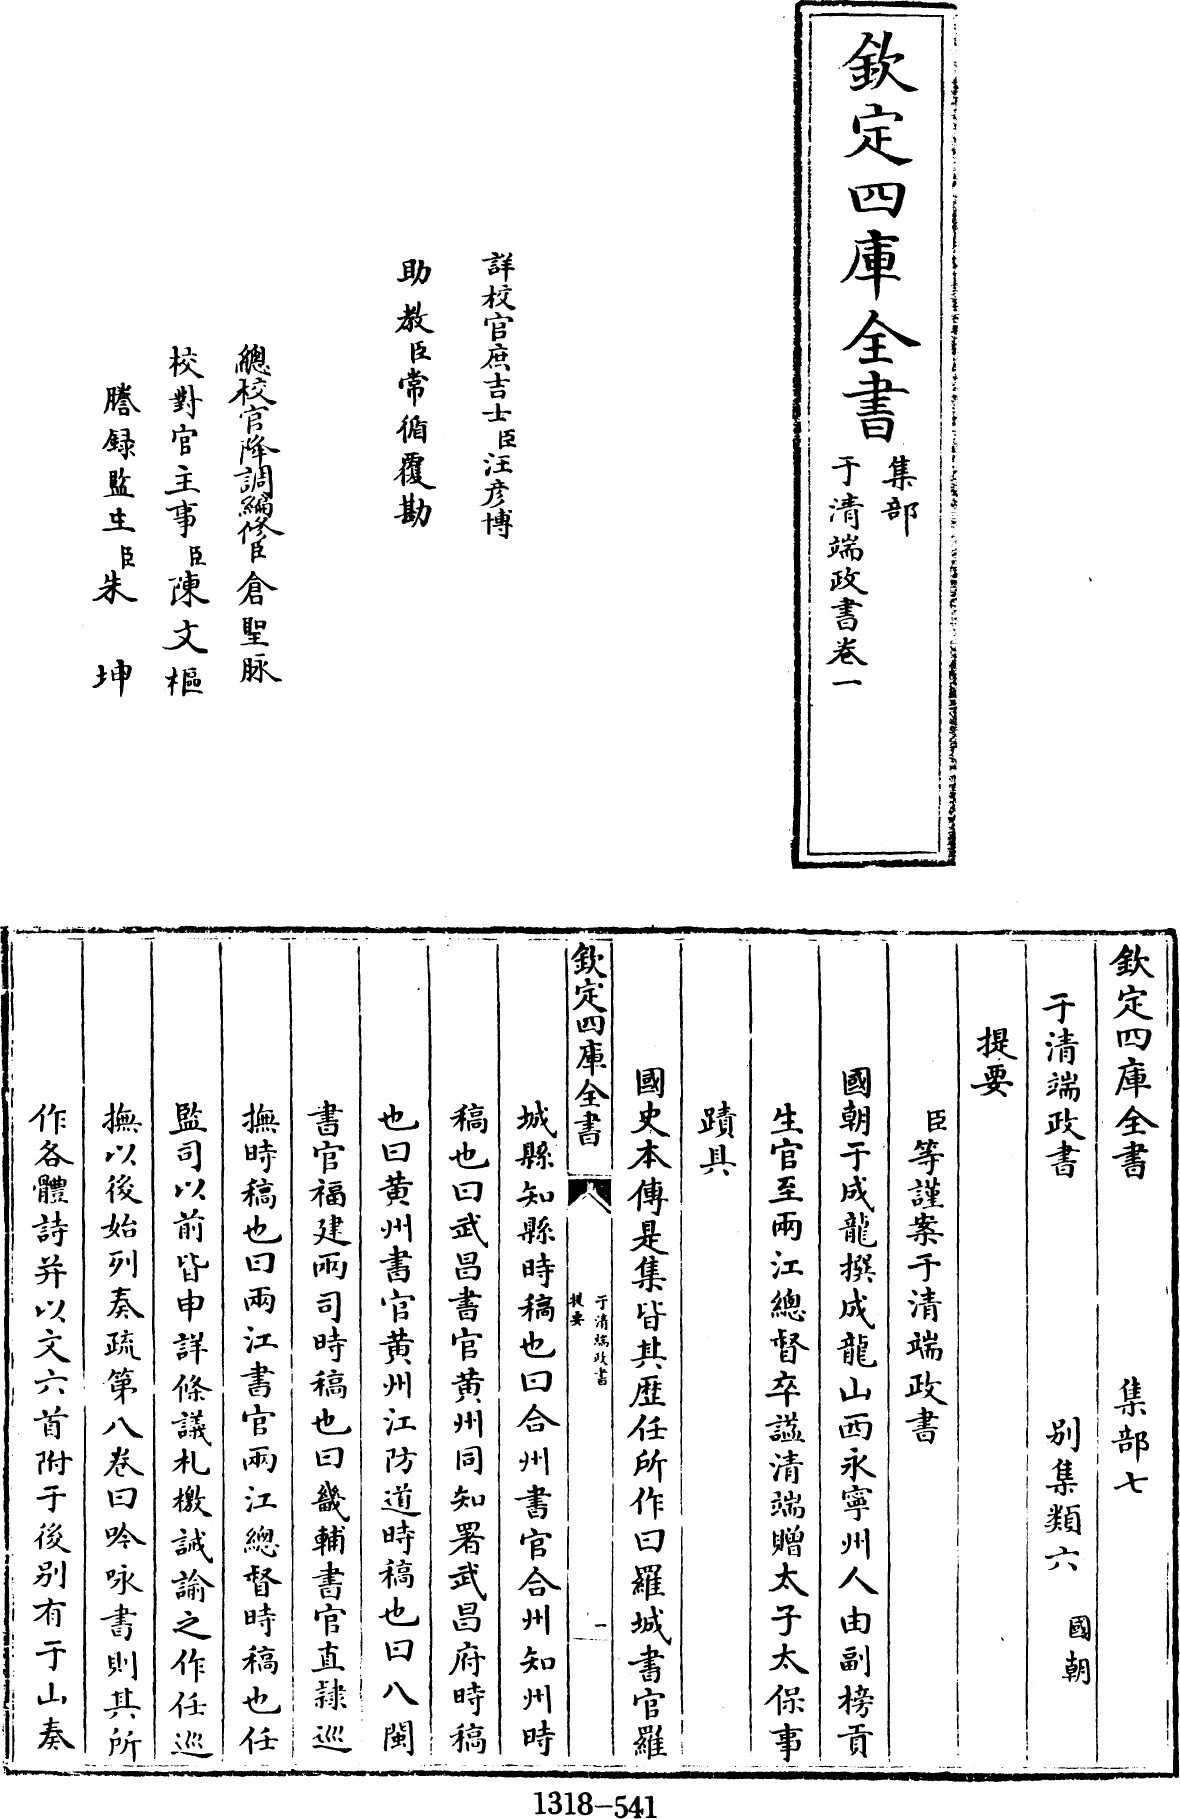 欽定四庫全書
集部
于清端政書卷一
詳校官庶吉士臣汪彦博
助教臣常循覆勘
總校官降調編修臣倉聖脉
校對官主事臣陳文樞
謄録監生臣朱坤
欽定四庫全書 集部七
于清端政書 别集類六 國朝
提要
臣等謹案于清端政書
國朝于成龍撰成龍山西永寧州人由副榜貢
生官至兩江總督卒諡清端贈太子太保事
蹟具
國史本傳是集皆其歷任所作曰羅城書官羅
欽定四庫全書
于清端政書
提要
一
城縣知縣時稿也曰合州書官合州知州時
稿也曰武昌書官黄州同知署武昌府時稿
也曰黄州書官黄州江防道時稿也曰八閩
書官福建兩司時稿也曰畿輔書官直隷巡
撫時稿也曰兩江書官兩江總督時稿也任
監司以前皆申詳條議札檄誡諭之作任巡
撫以後始列奏疏第八卷曰吟咏書則其所
作各體詩并以文六首附于後别有于山奏
1318-541